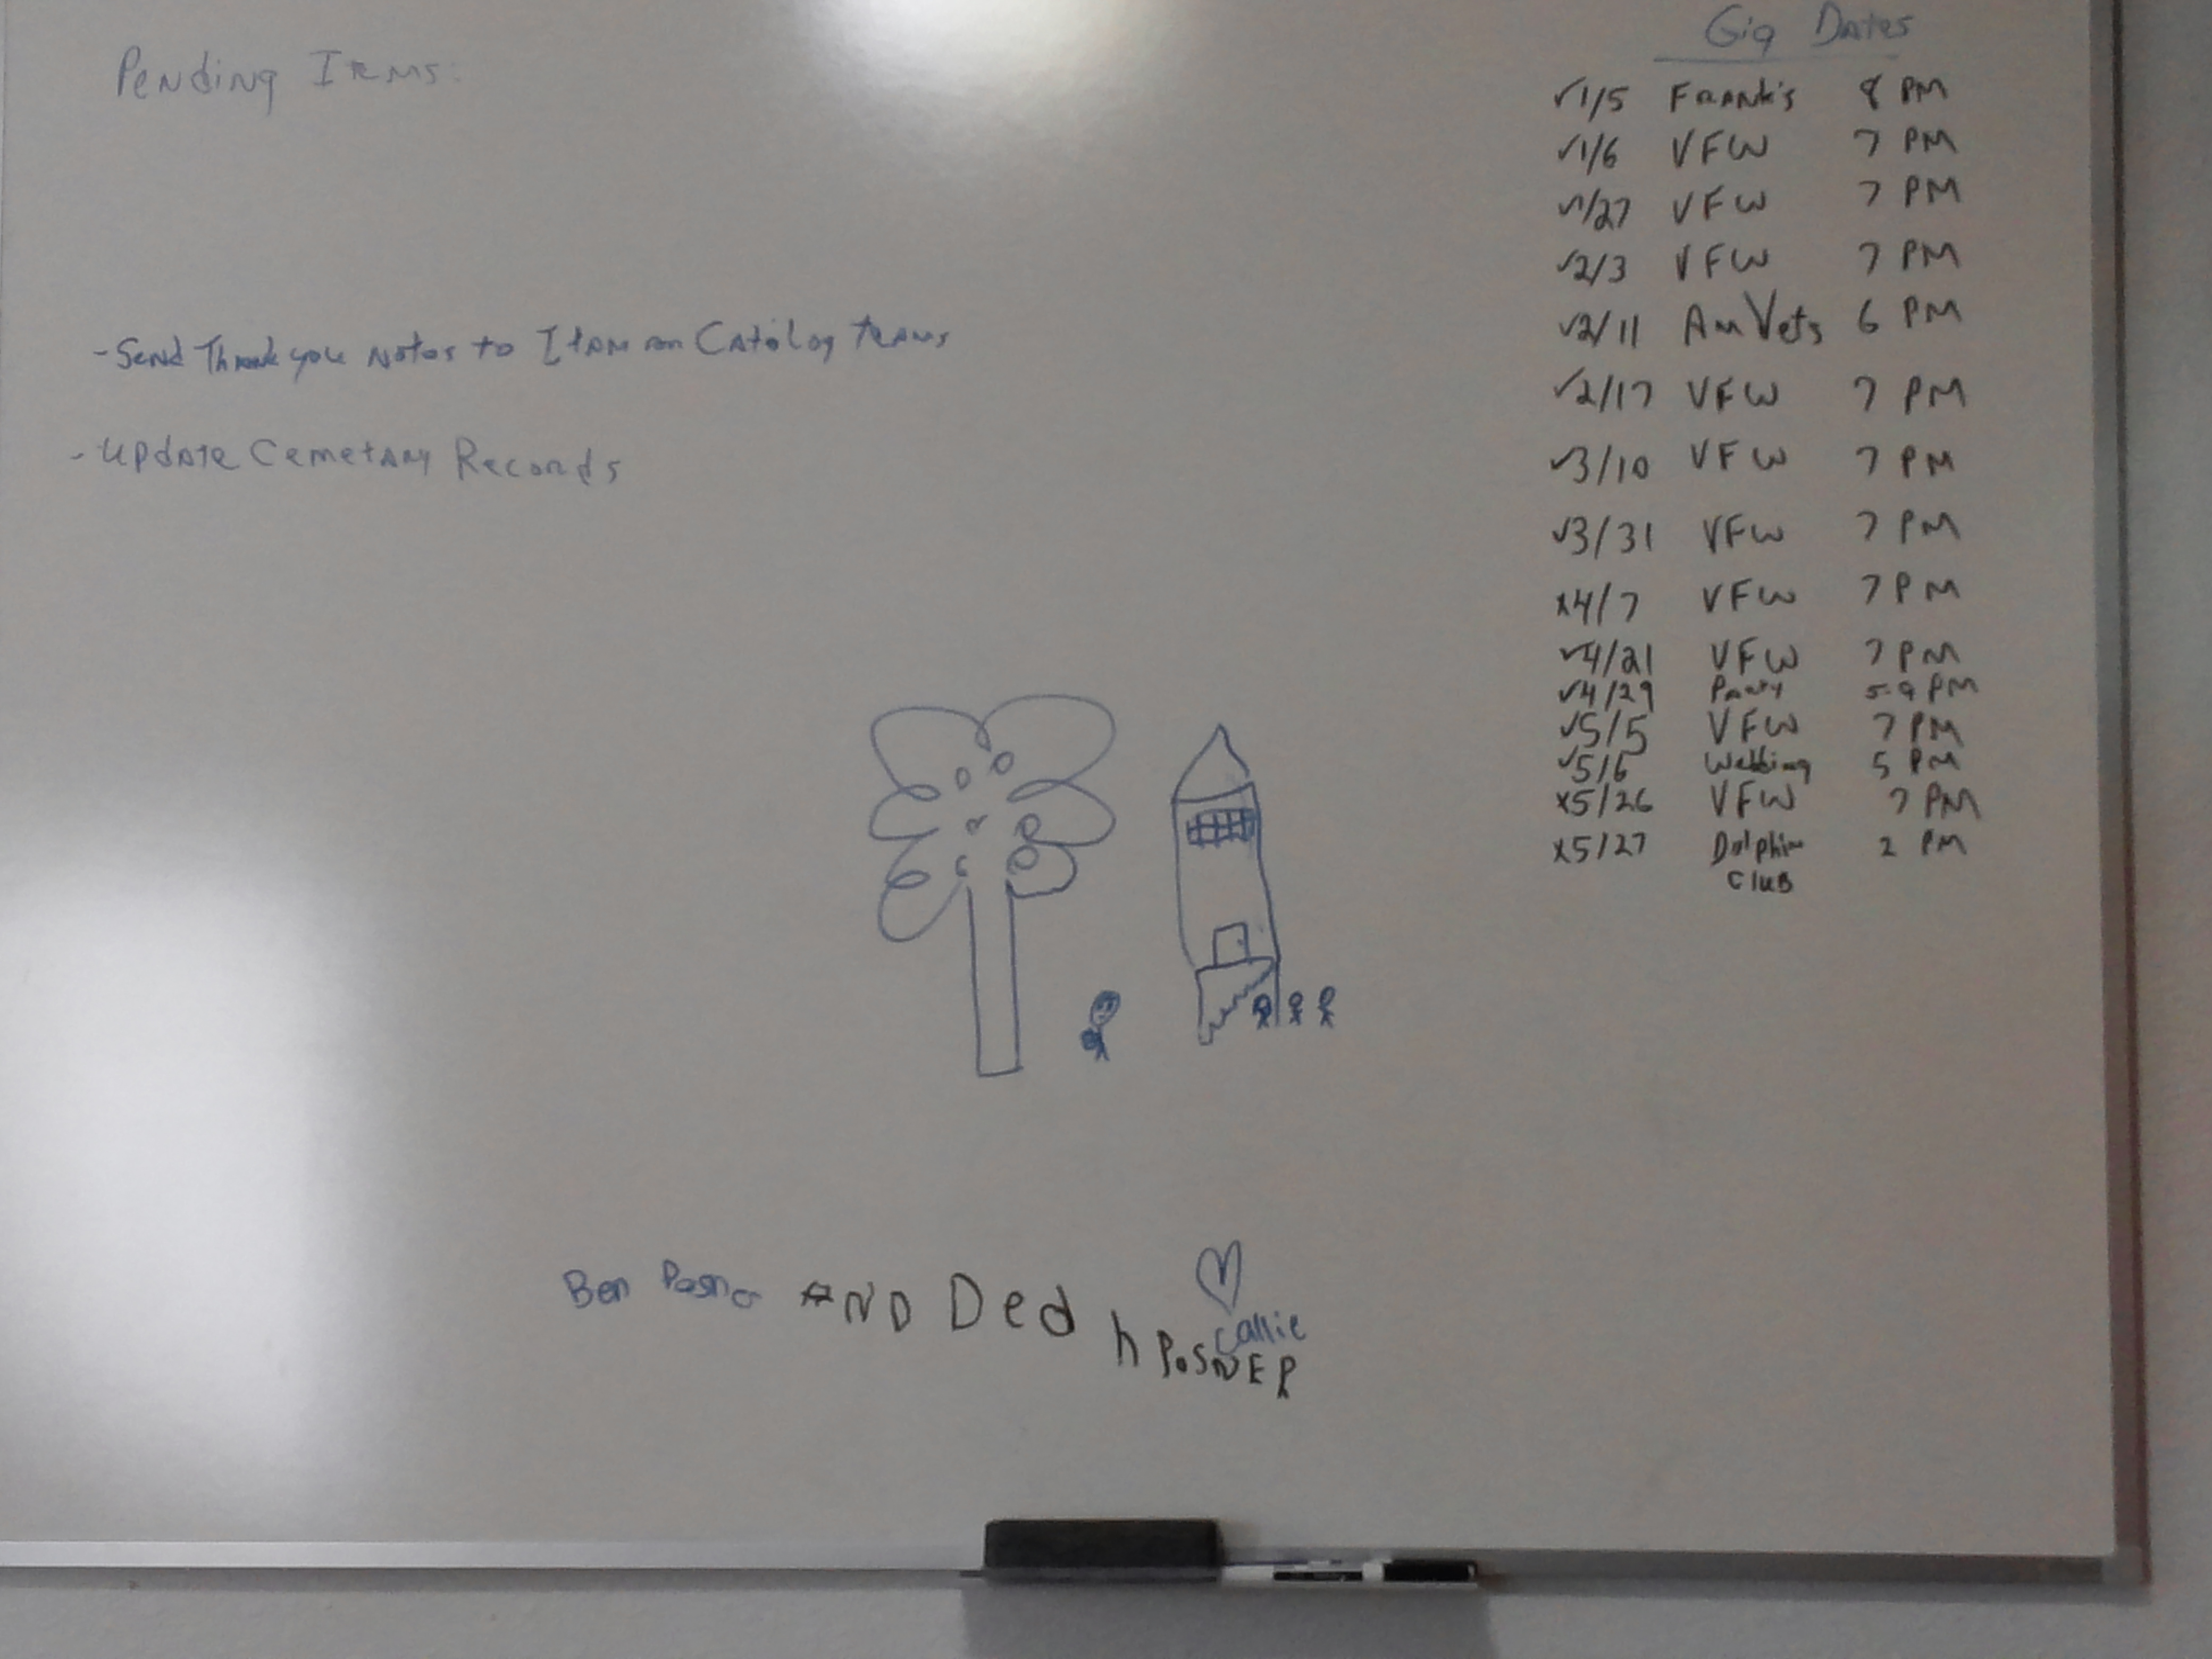 Pending Items:
- Send Thank you Notes to Item on Catalog teams
- Update Cemetary Records
Gig Dates
✓1/5 Frank's 8 PM
✓1/6 VFW 7 PM
✓1/27 VFW 7 PM
✓2/3 VFW 7 PM
✓2/11 AmVets 6 PM
✓2/17 VFW 7 PM
✓3/10 VFW 7 PM
✓3/31 VFW 7 PM
x4/7 VFW 7 PM
✓4/21 VFW 7 PM
✓4/29 Party 5-9 PM
✓5/5 VFW 7 PM
✓5/6 Wedding 5 PM
x5/26 VFW 7 PM
x5/27 Dolphin 2 PM
Club
Ben AND Ded h
Callie
POSNER